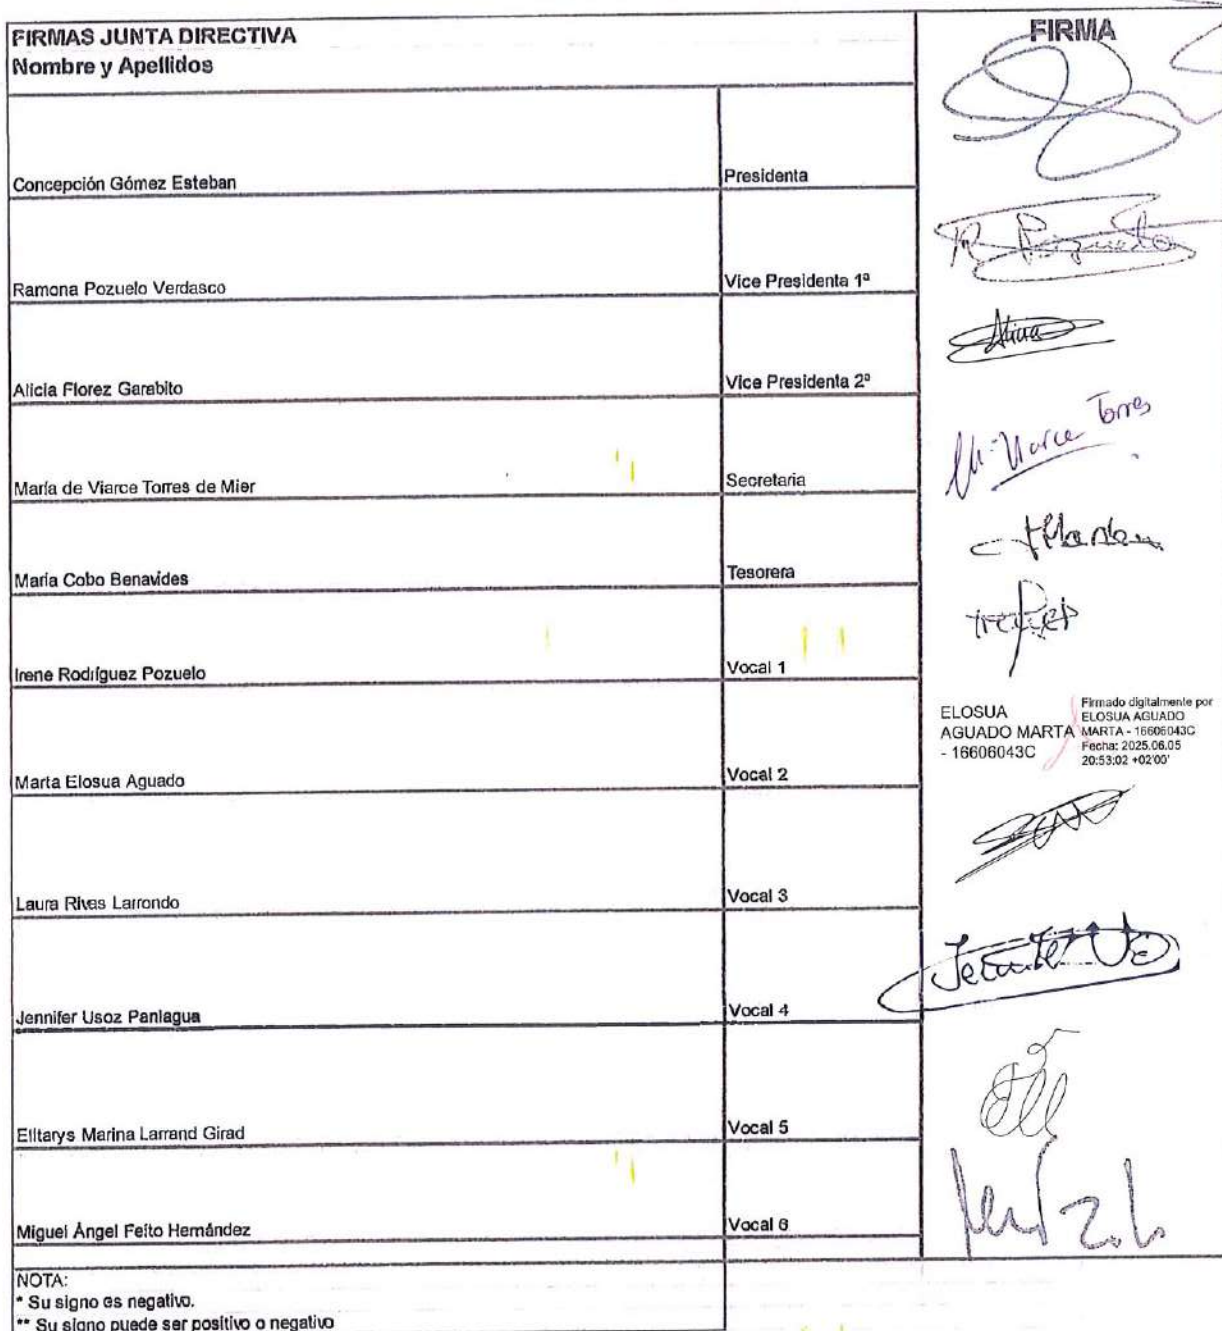 FIRMAS JUNTA DIRECTIVA
Nombre y Apellidos
FIRMA
Concepción Gómez Esteban Presidenta
Ramona Pozuelo Verdasco Vice Presidenta 1ª
R. Pozuelo
Alicia Florez Garabito Vice Presidenta 2ª
Alicia
María de Viarce Torres de Mier Secretaria
Torres
María Cobo Benavides Tesorera
Irene Rodríguez Pozuelo Vocal 1
Marta Elosua Aguado Vocal 2
ELOSUA
AGUADO MARTA
- 16606043C
Firmado digitalmente por
ELOSUA AGUADO
MARTA - 16606043C
Fecha: 2025.06.05
20:53:02 +02'00'
Laura Rivas Larrondo Vocal 3
Jennifer Usoz Paniagua Vocal 4
Elitarys Marina Larrand Girad Vocal 5
Miguel Ángel Feito Hernández Vocal 6
NOTA:
* Su signo es negativo.
** Su signo puede ser positivo o negativo